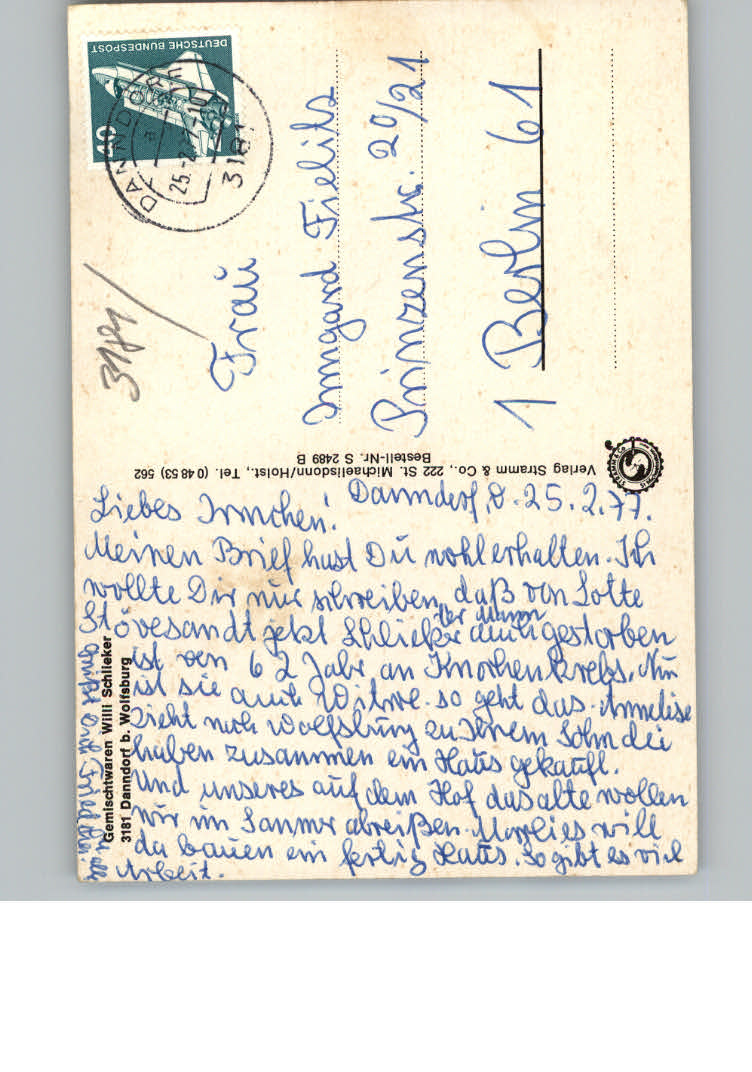 Danndorf, d. 25.2.77.
Liebes Irmchen!
Meinen Brief hast Du wohl erhalten. Ich
wollte Dir nur schreiben, daß von Lotte
Stövesandt jetzt Schlieker der Mann auch gestorben
ist von 62 Jahr an Knochenkrebs. Nun
ist sie auch Witwe. so geht das. Annelise
zieht nach Wolfsburg zu Ihrem Sohn die
haben zusammen ein Haus gekauft.
Und unseres auf dem Hof das alte wollen
wir im Sommer abreißen. Marlies will
da bauen ein fertig Haus. So gibt es viel
Arbeit.
Grüße Dich Friedchen
Gemischtwaren Willi Schlieker
3181 Danndorf b. Wolfsburg
Verlag Stramm & Co., 222 St. Michaelisdonn/Holst., Tel. (0 48 53) 562
Bestell-Nr. S 2489 B
STRAMM & Co
3181
DEUTSCHE BUNDESPOST
40
DANNDORF
a
25.-2.77-10
3181
Frau
Irmgard Fielitz
Prinzenstr. 20/21
1 Berlin 61